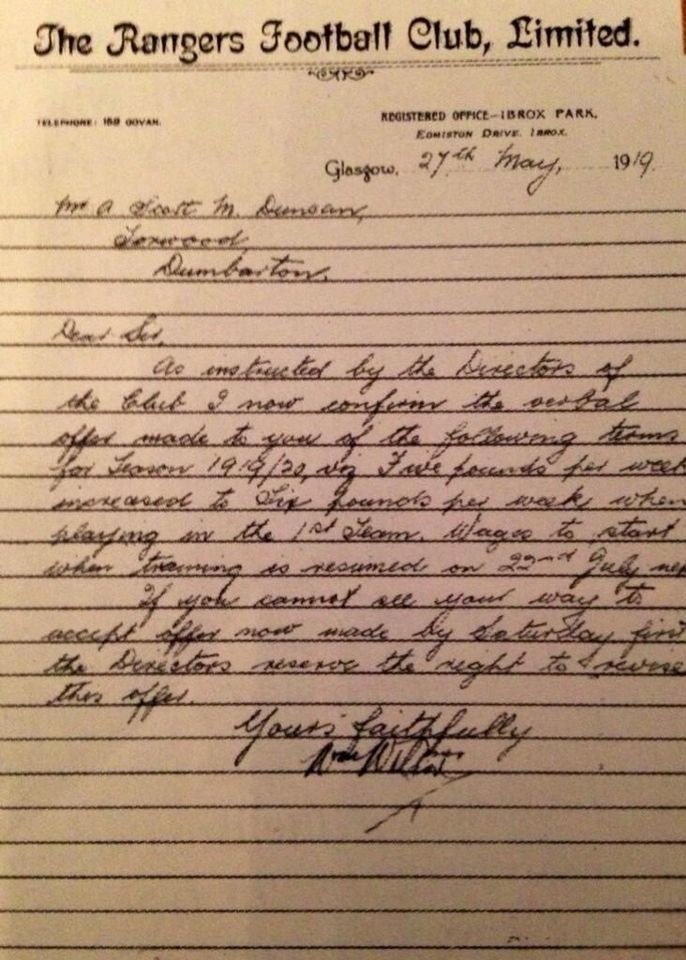 The Rangers Football Club, Limited.
TELEPHONE: 159 GOVAN.
REGISTERED OFFICE—IBROX PARK,
EDMISTON DRIVE, IBROX.
Glasgow, 27th May, 1919.
Mr A Scott M. Duncan,
Torwood,
Dumbarton.
Dear Sir,
As instructed by the Directors of
the Club I now confirm the verbal
offer made to you of the following terms
for Season 1919/20, viz Five pounds per week
increased to Six pounds per week when
playing in the 1st Team. Wages to start
when training is resumed on 22nd July
If you cannot see your way to
accept offer now made by Saturday first
the Directors reserve the right to revise
this offer.
Yours faithfully
Wm Wilton